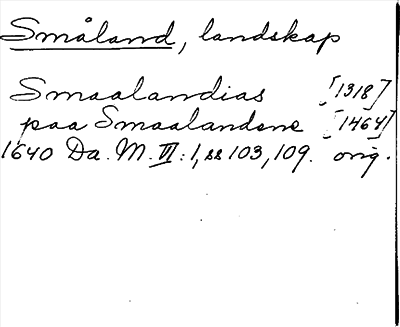 Småland, landskap
Smaalandias [1318]
paa Smaalandene [1464]
1640 Da. M. III: 1, ss 103, 109. orig.